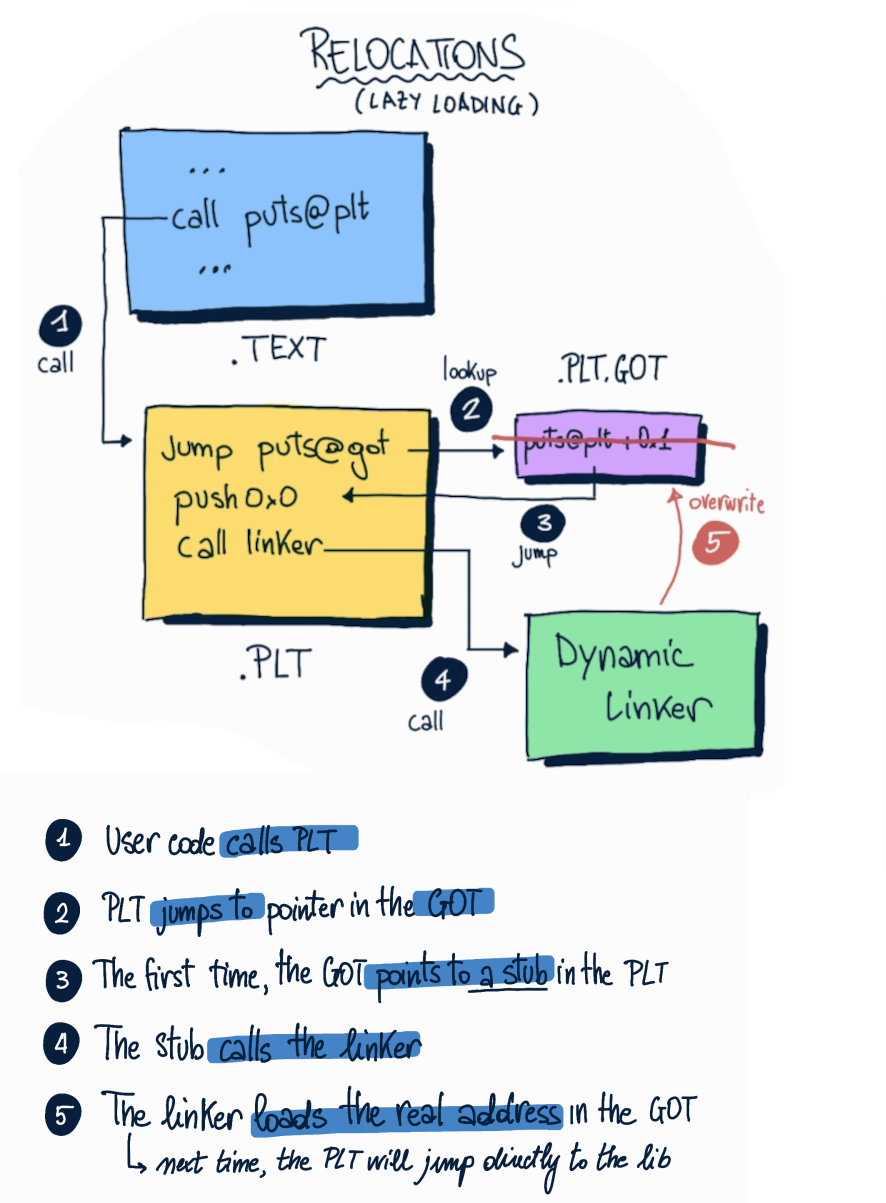 RELOCATIONS
(LAZY LOADING)
...
call puts@plt
...
1
call
.TEXT
lookup
2
.PLT.GOT
Jump puts@got
puts@plt + 0x1
push 0x0
3
Jump
overwrite
5
call linker
.PLT
4
call
Dynamic
Linker
1 User code calls PLT
2 PLT jumps to pointer in the GOT
3 The first time, the GOT points to a stub in the PLT
4 The stub calls the linker
5 The linker loads the real address in the GOT
↳ next time, the PLT will jump directly to the lib